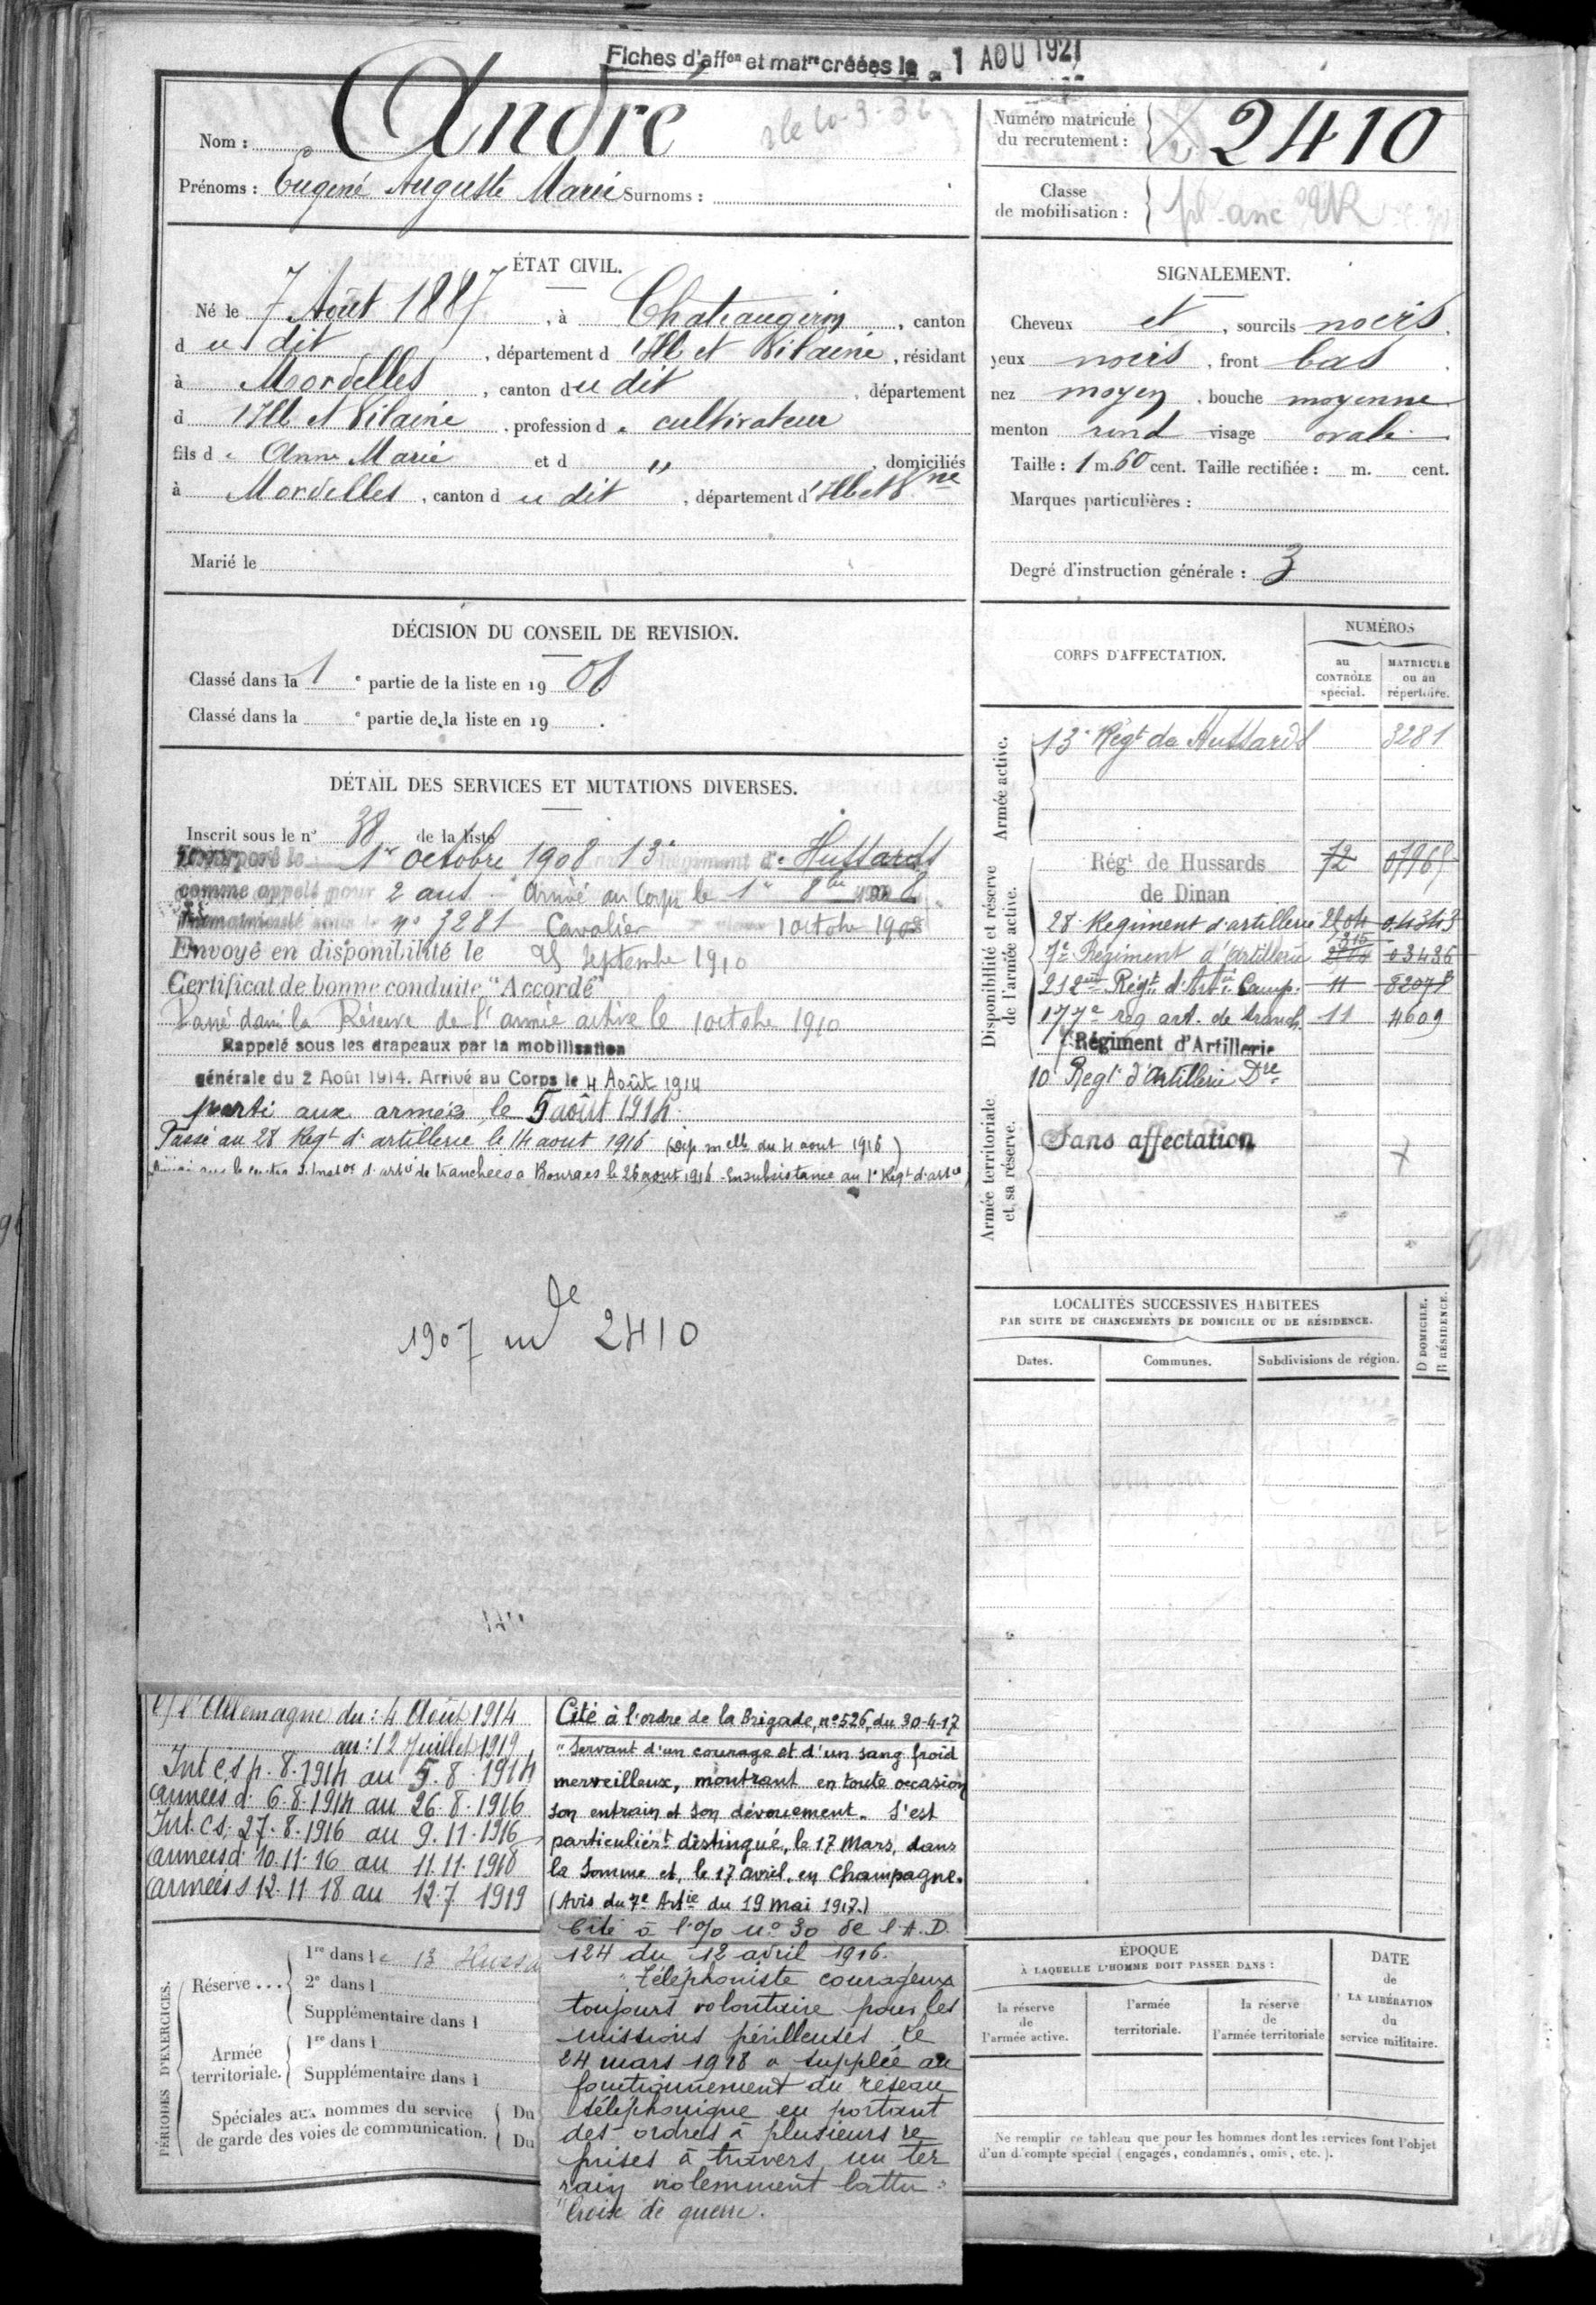 Fiches d'affon et matre créées le - 1 AOU 1921
Nom : André
Prénoms : Eugène Auguste Marie Surnoms :
Numéro matricule
du recrutement : 2410
Classe
de mobilisation : pl. anc
ÉTAT CIVIL.
Né le 7 Août 1887, à Chateaugiron, canton
du dit, département d'Ille et Vilaine, résidant
à Mordelles, canton du dit, département
d'Ille et Vilaine, profession de cultivateur
fils de Anne Marie et d " , domiciliés
à Mordelles, canton du dit, département d'Ille et Vne
Marié le
SIGNALEMENT.
Cheveux et, sourcils noirs.
yeux noirs, front bas
nez moyen, bouche moyenne
menton rond visage ovale
Taille : 1 m. 60 cent. Taille rectifiée : m. cent.
Marques particulières :
Degré d'instruction générale : 3
DÉCISION DU CONSEIL DE REVISION.
Classé dans la 1e partie de la liste en 1908.
Classé dans la e partie de la liste en 19 .
DÉTAIL DES SERVICES ET MUTATIONS DIVERSES.
Inscrit sous le n° 38 de la liste
Incorporé le 1er octobre 1908 13e Régiment de Hussards
comme appelé pour 2 ans. Arrivé au Corps le 1er 8bre 1908
Immatriculé sous le n° 3281 Cavalier 1 octobre 1908
Envoyé en disponibilité le 25 septembre 1910
Certificat de bonne conduite "Accordé"
Passé dans la Réserve de l'armée active le 1 octobre 1910
Rappelé sous les drapeaux par la mobilisation
générale du 2 Août 1914. Arrivé au Corps le 4 Août 1914
parti aux armées le 5 août 1914.
Passé au 28 Régt d'artillerie le 14 aout 1916 (Dép. melle du 4 aout 1916)
centre d'artie de tranchées a Bourges le 26 aout 1916. En subsistance au 1er Régt d'artie
1907 mle 2410
CORPS D'AFFECTATION.
NUMÉROS
au
CONTRÔLE
spécial.
MATRICULE
ou au
répertoire.
Armée active.
13e Régt de Hussards 3281
Disponibilité et réserve
de l'armée active.
Régt de Hussards 72
de Dinan
28e Régiment d'artillerie 2204 04343
7e Régiment d'artillerie 315 03436
212me Régt d'Artie Camp. 11 8207
177e rég art. de tranch 11 4609
7 Régiment d'Artillerie
10 Regt d'Artillerie Dre
Armée territoriale
et sa réserve.
Sans affectation
LOCALITÉS SUCCESSIVES HABITÉES
PAR SUITE DE CHANGEMENTS DE DOMICILE OU DE RÉSIDENCE.
Dates. Communes. Subdivisions de région. D DOMICILE. R RÉSIDENCE.
C/ l'Allemagne du : 4 Août 1914
au : 12 Juillet 1919
Int C.S 4.8.1914 au 5.8.1914
Armées d. 6.8.1914 au 26.8.1916
Int. C.S. 27.8.1916 au 9.11.1916
Armées d. 10.11.16 au 11.11.1918
Armées s 12.11.18 au 12.7.1919
Cité à l'ordre de la Brigade, n° 526, du 30-4-17
"Servant d'un courage et d'un sang froid
merveilleux, montrant en toute occasion
son entrain et son dévouement. S'est
particuliert distingué, le 17 Mars, dans
la Somme et, le 17 avril, en Champagne.
(Avis du 7e Artie du 19 mai 1917.)
Cité à l'o/o n° 30 de l'A.D.
124 du 12 avril 1916.
"Téléphoniste courageux
toujours volontaire pour les
missions périlleuses. Le
24 mars 1918 a suppléé au
fonctionnement du réseau
téléphonique en portant
des ordres à plusieurs re
prises à travers un ter
rain violemment battu"
Croix de guerre.
PÉRIODES D'EXERCICES.
Réserve ... 1re dans le 13 Hussa
2e dans l
Supplémentaire dans l
Armée
territoriale. 1re dans l
Supplémentaire dans l
Spéciales aux hommes du service
de garde des voies de communication. Du
Du
ÉPOQUE
À LAQUELLE L'HOMME DOIT PASSER DANS :
la réserve
de
l'armée active.
l'armée
territoriale.
la réserve
de
l'armée territoriale
DATE
de
LA LIBÉRATION
du
service militaire.
Ne remplir ce tableau que pour les hommes dont les services font l'objet
d'un décompte spécial (engagés, condamnés, omis, etc.).